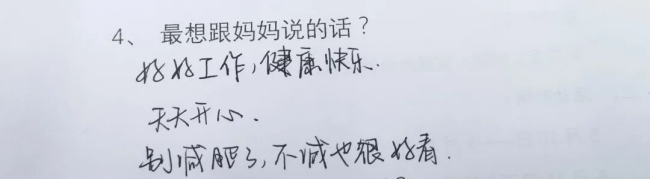 4、 最想跟妈妈说的话？
好好工作，健康快乐.
天天开心.
别减肥了，不减也很好看.